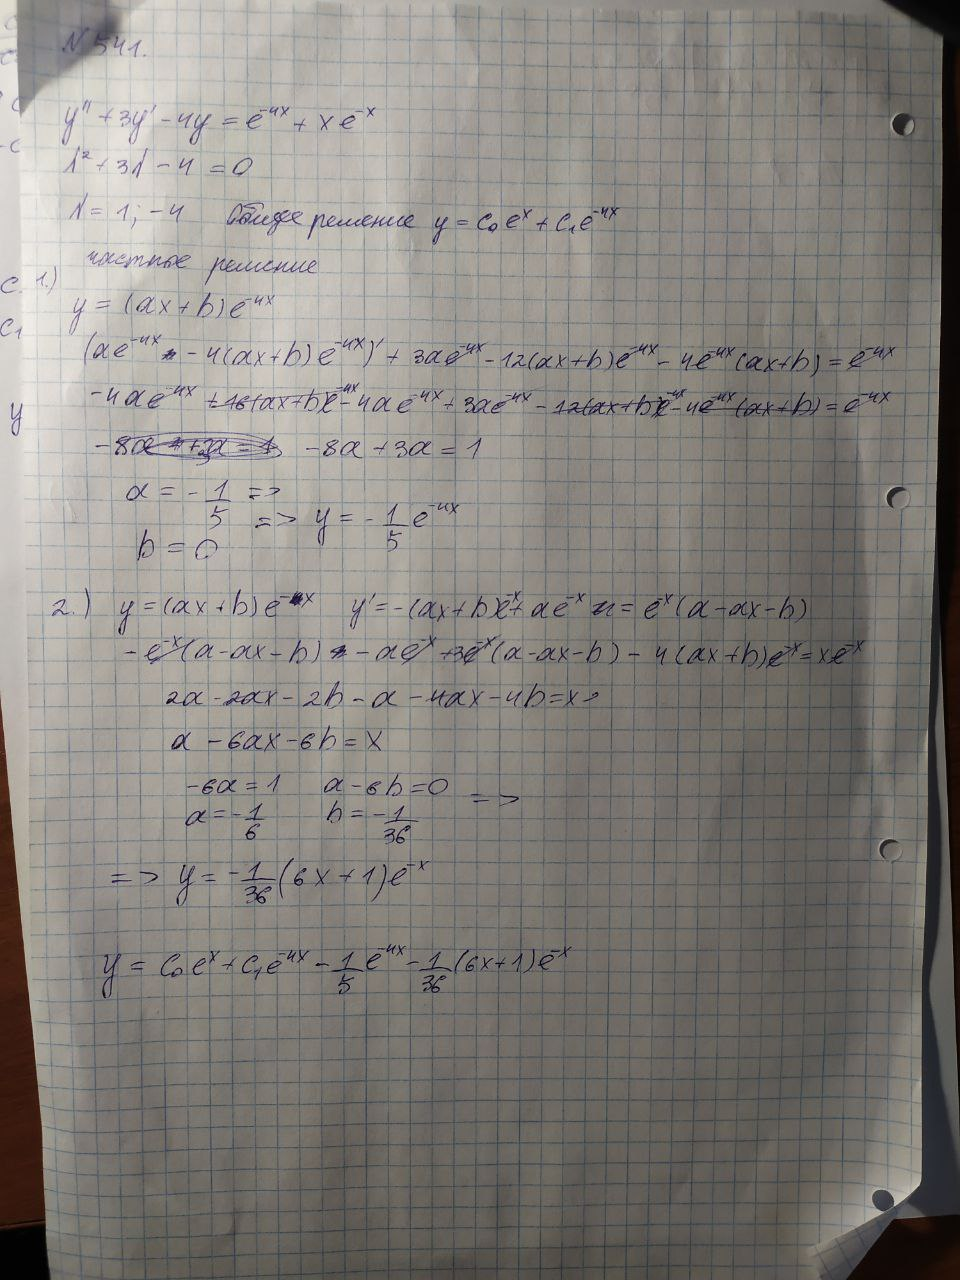 N 541.
y'' + 3y' - 4y = e^{-4x} + xe^{-x}
λ² + 3λ - 4 = 0
λ = 1; -4 Общее решение y = C₀e^x + C₁e^{-4x}
частное решение
1.)
y = (ax + b)e^{-4x}
(ae^{-4x} - 4(ax+b)e^{-4x})' + 3ae^{-4x} - 12(ax+b)e^{-4x} - 4e^{-4x}(ax+b) = e^{-4x}
-4ae^{-4x} + 16(ax+b)e^{-4x} - 4ae^{-4x} + 3ae^{-4x} - 12(ax+b)e^{-4x} - 4e^{-4x}(ax+b) = e^{-4x}
-8a + 3a = 1
a = -1/5 =>
=> y = -1/5 e^{-4x}
b = 0
2.) y = (ax + b)e^{-x} y' = -(ax+b)e^{-x} + ae^{-x} = e^{-x}(a - ax - b)
-e^{-x}(a - ax - b) - ae^{-x} + 3e^{-x}(a - ax - b) - 4(ax+b)e^{-x} = xe^{-x}
2a - 2ax - 2b - a - 4ax - 4b = x
a - 6ax - 6b = x
-6a = 1 a - 6b = 0 =>
a = -1/6 b = -1/36
=> y = -1/36 (6x + 1)e^{-x}
y = C₀e^x + C₁e^{-4x} - 1/5 e^{-4x} - 1/36 (6x+1)e^{-x}